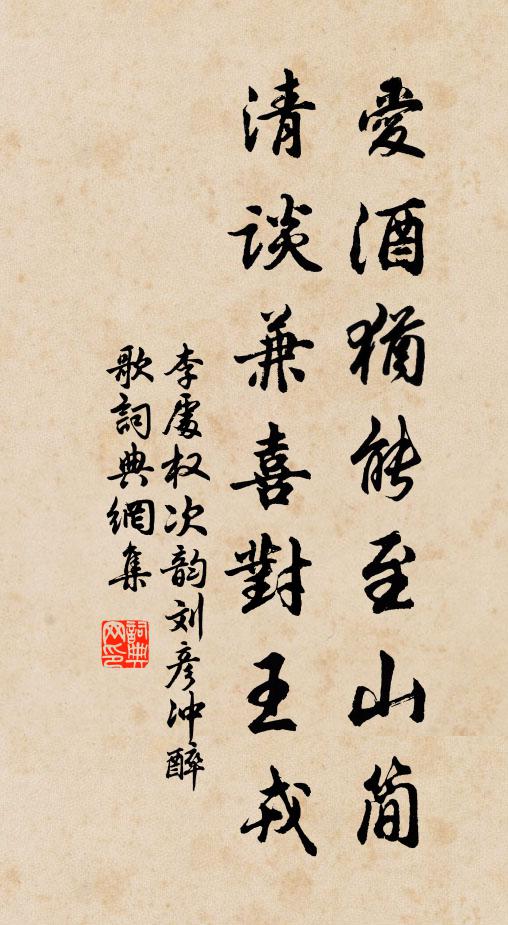 愛酒猶能至山简
清談兼喜對王戎
李處权次韵刘彦冲醉
歌詞典網集
詞典网印